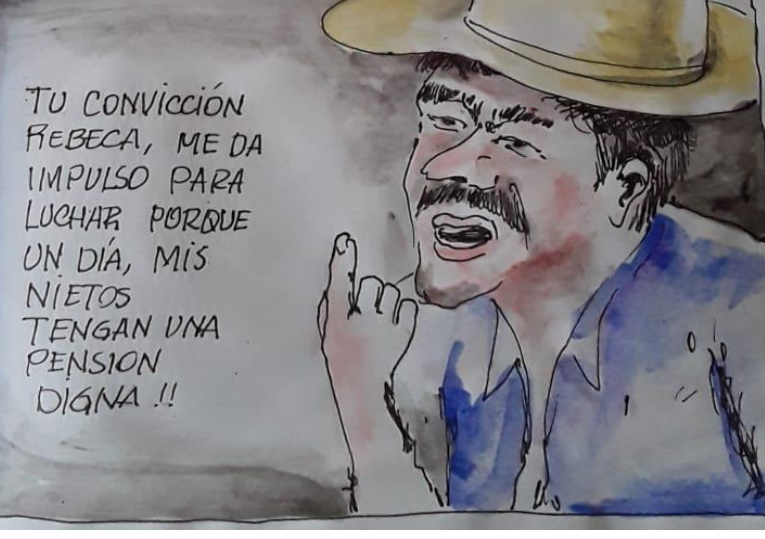 TU CONVICCIÓN
REBECA, ME DA
IMPULSO PARA
LUCHAR PORQUE
UN DÍA, MIS
NIETOS
TENGAN UNA
PENSION
DIGNA !!